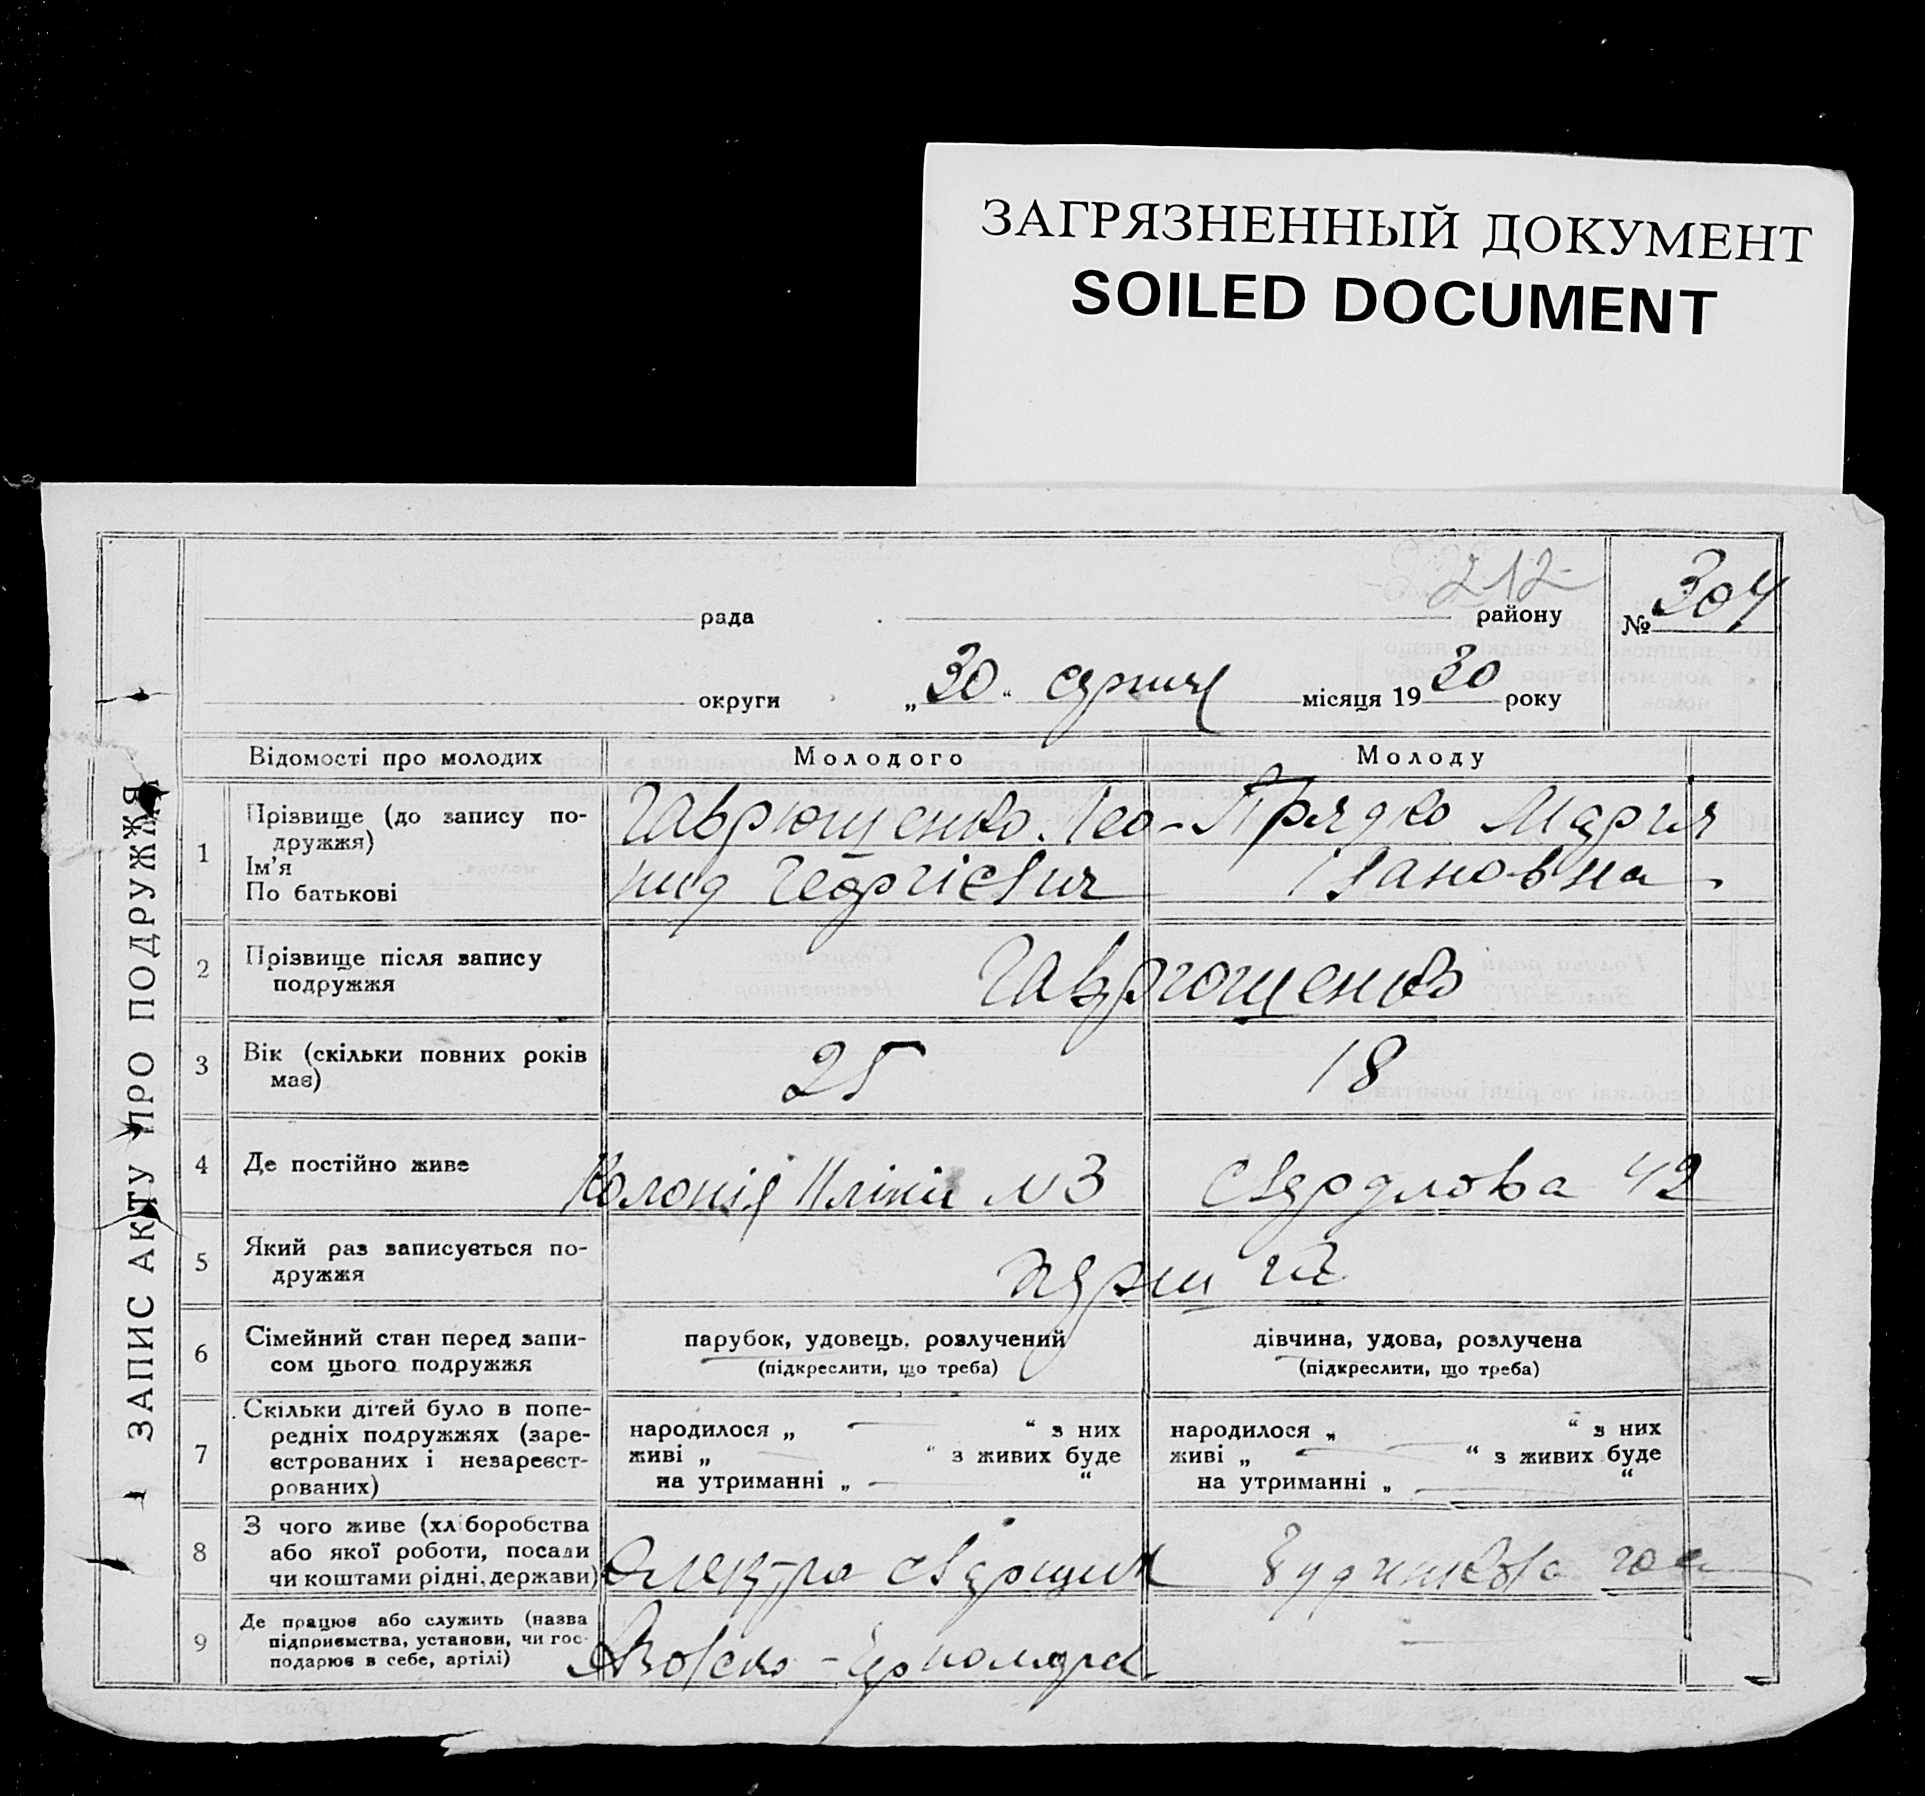 ЗАГРЯЗНЕННЫЙ ДОКУМЕНТ
SOILED DOCUMENT
ЗАПИС АКТУ ПРО ПОДРУЖЖЯ
212
рада району № 304
округи „30“ серпня місяця 1930 року
Відомості про молодих Молодого Молоду
1 Прізвище (до запису по-
дружжя)
Ім'я
По батькові
Гаврющенко Лео-
нид Георгієвич
Прядко Мария
Івановна
2 Прізвище після запису
подружжя
Гаврющенко
3 Вік (скільки повних років
має)
25 18
4 Де постійно живе
Колонія №3 Свердлова 42
5 Який раз записується по-
дружжя
6 Сімейний стан перед запи-
сом цього подружжя
парубок, удовець, розлучений
(підкреслити, що треба)
дівчина, удова, розлучена
(підкреслити, що треба)
7 Скільки дітей було в попе-
редніх подружжях (заре-
єстрованих і незареєст-
рованих)
народилося „ — “ з них
живі „ — “ з живих буде
на утриманні „ — “
народилося „ — “ з них
живі „ — “ з живих буде
на утриманні „ — “
8 З чого живе (хліборобства
або якої роботи, посади
чи коштами рідні, держави)
Електро сварщик
9 Де працює або служить (назва
підприємства, установи, чи гос-
подарює в себе, артілі)